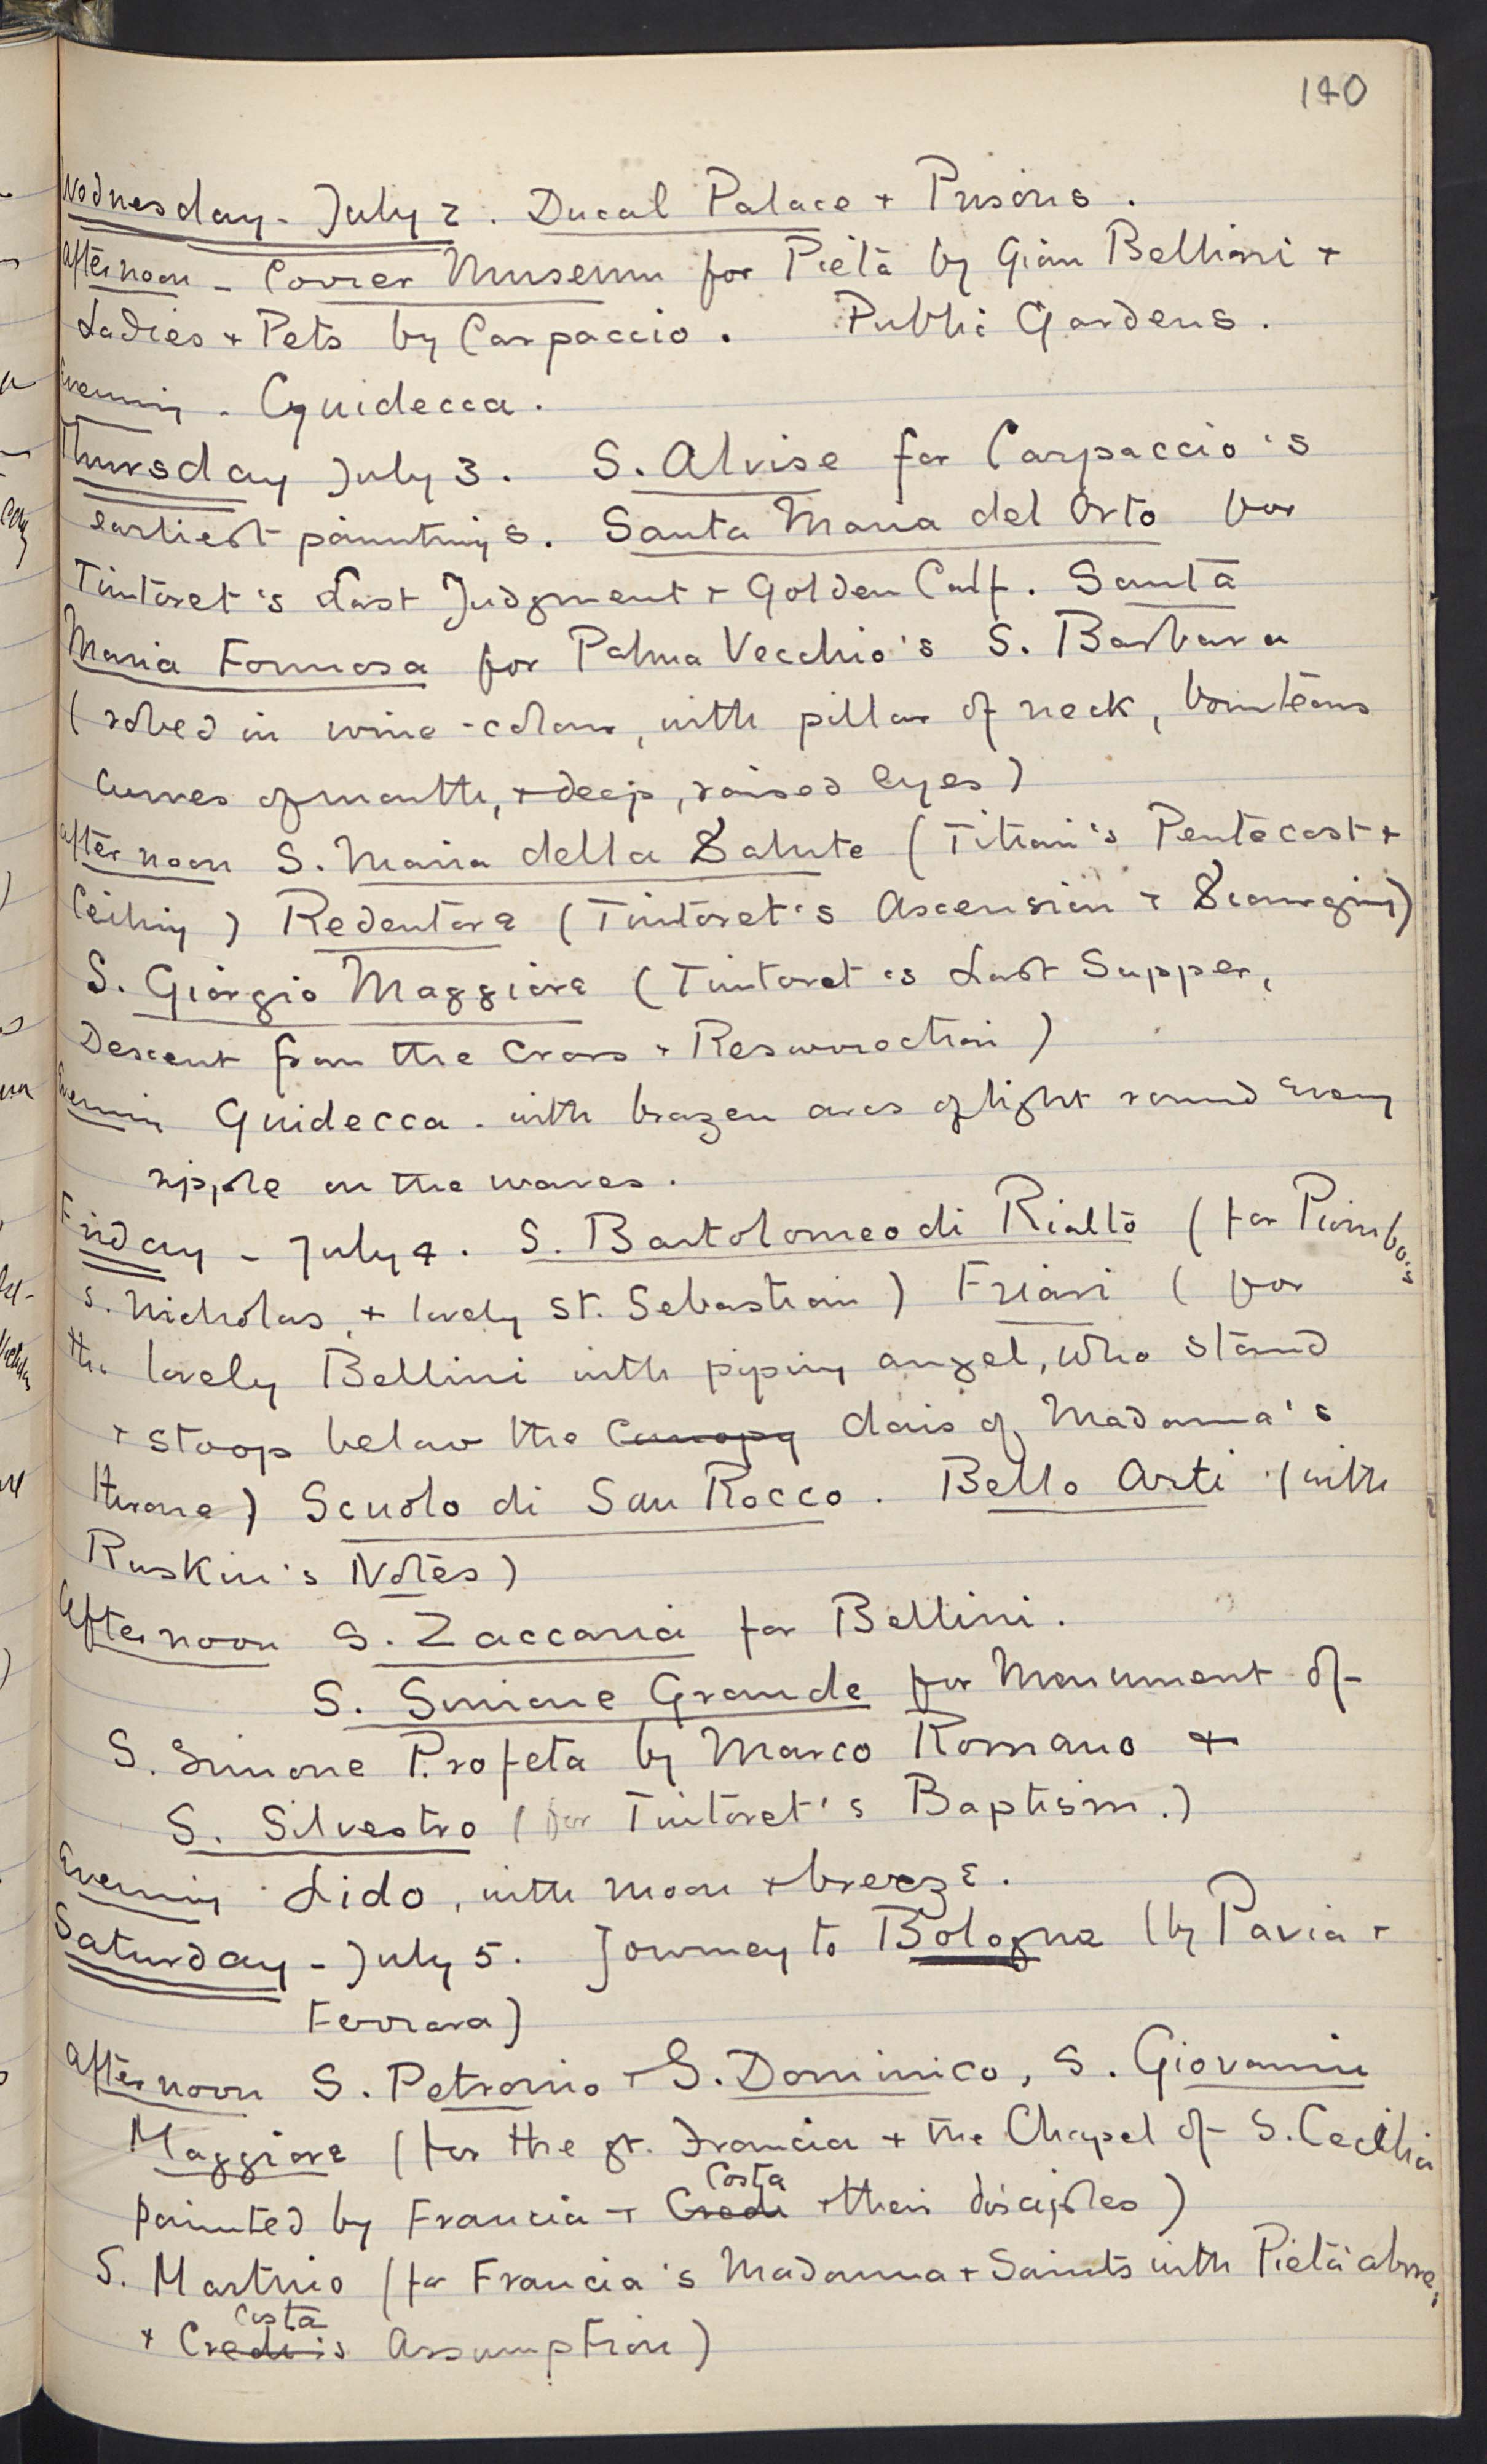 140
Wednesday - July 2. Ducal Palace + Prisons.
Afternoon - Correr Museum for Pietà by Gian Bellini +
Ladies + Pets by Carpaccio. Public Gardens.
Evening - Guidecca.
Thursday July 3. S. Alvise for Carpaccio's
earliest paintings. Santa Maria del Orto for
Tintoret's Last Judgment + Golden Calf. Santa
Maria Formosa for Palma Vecchio's S. Barbara
(robed in wine-colour, with pillar of neck, bounteous
curves of mouth, + deep, raised eyes)
Afternoon S. Maria della Salute (Titian's Pentecost +
Ceiling) Redentore (Tintoret's Ascension + Scourging)
S. Giorgio Maggiore (Tintoret's Last Supper,
Descent from the Cross + Resurrection)
Evening Guidecca. with brazen arcs of light round every
ripple on the waves.
Friday - July 4. S. Bartolomeo di Rialto (for Piombo's
S. Nicholas + lovely St. Sebastian) Friari (for
the lovely Bellini with piping angel, who stand
+ stoop below the Canopy dais of Madonna's
throne) Scuolo di San Rocco. Bello Arti (with
Ruskin's Notes)
Afternoon S. Zaccaria for Bellini.
S. Simone Grande for Monument of
S. Simone Profeta by Marco Romano +
S. Silvestro (for Tintoret's Baptism.)
Evening Lido, with moon + breeze.
Saturday - July 5. Journey to Bologna (by Pavia +
Ferrara)
Afternoon S. Petronio + S. Dominico, S. Giovannie
Maggiore (for the gt. Francia + the Chapel of S. Cecilia
painted by Francia + Credi Costa + their disciples)
S. Martino (for Francia's Madonna + Saints with Pietà above,
+ Credi's Costa Assumption)